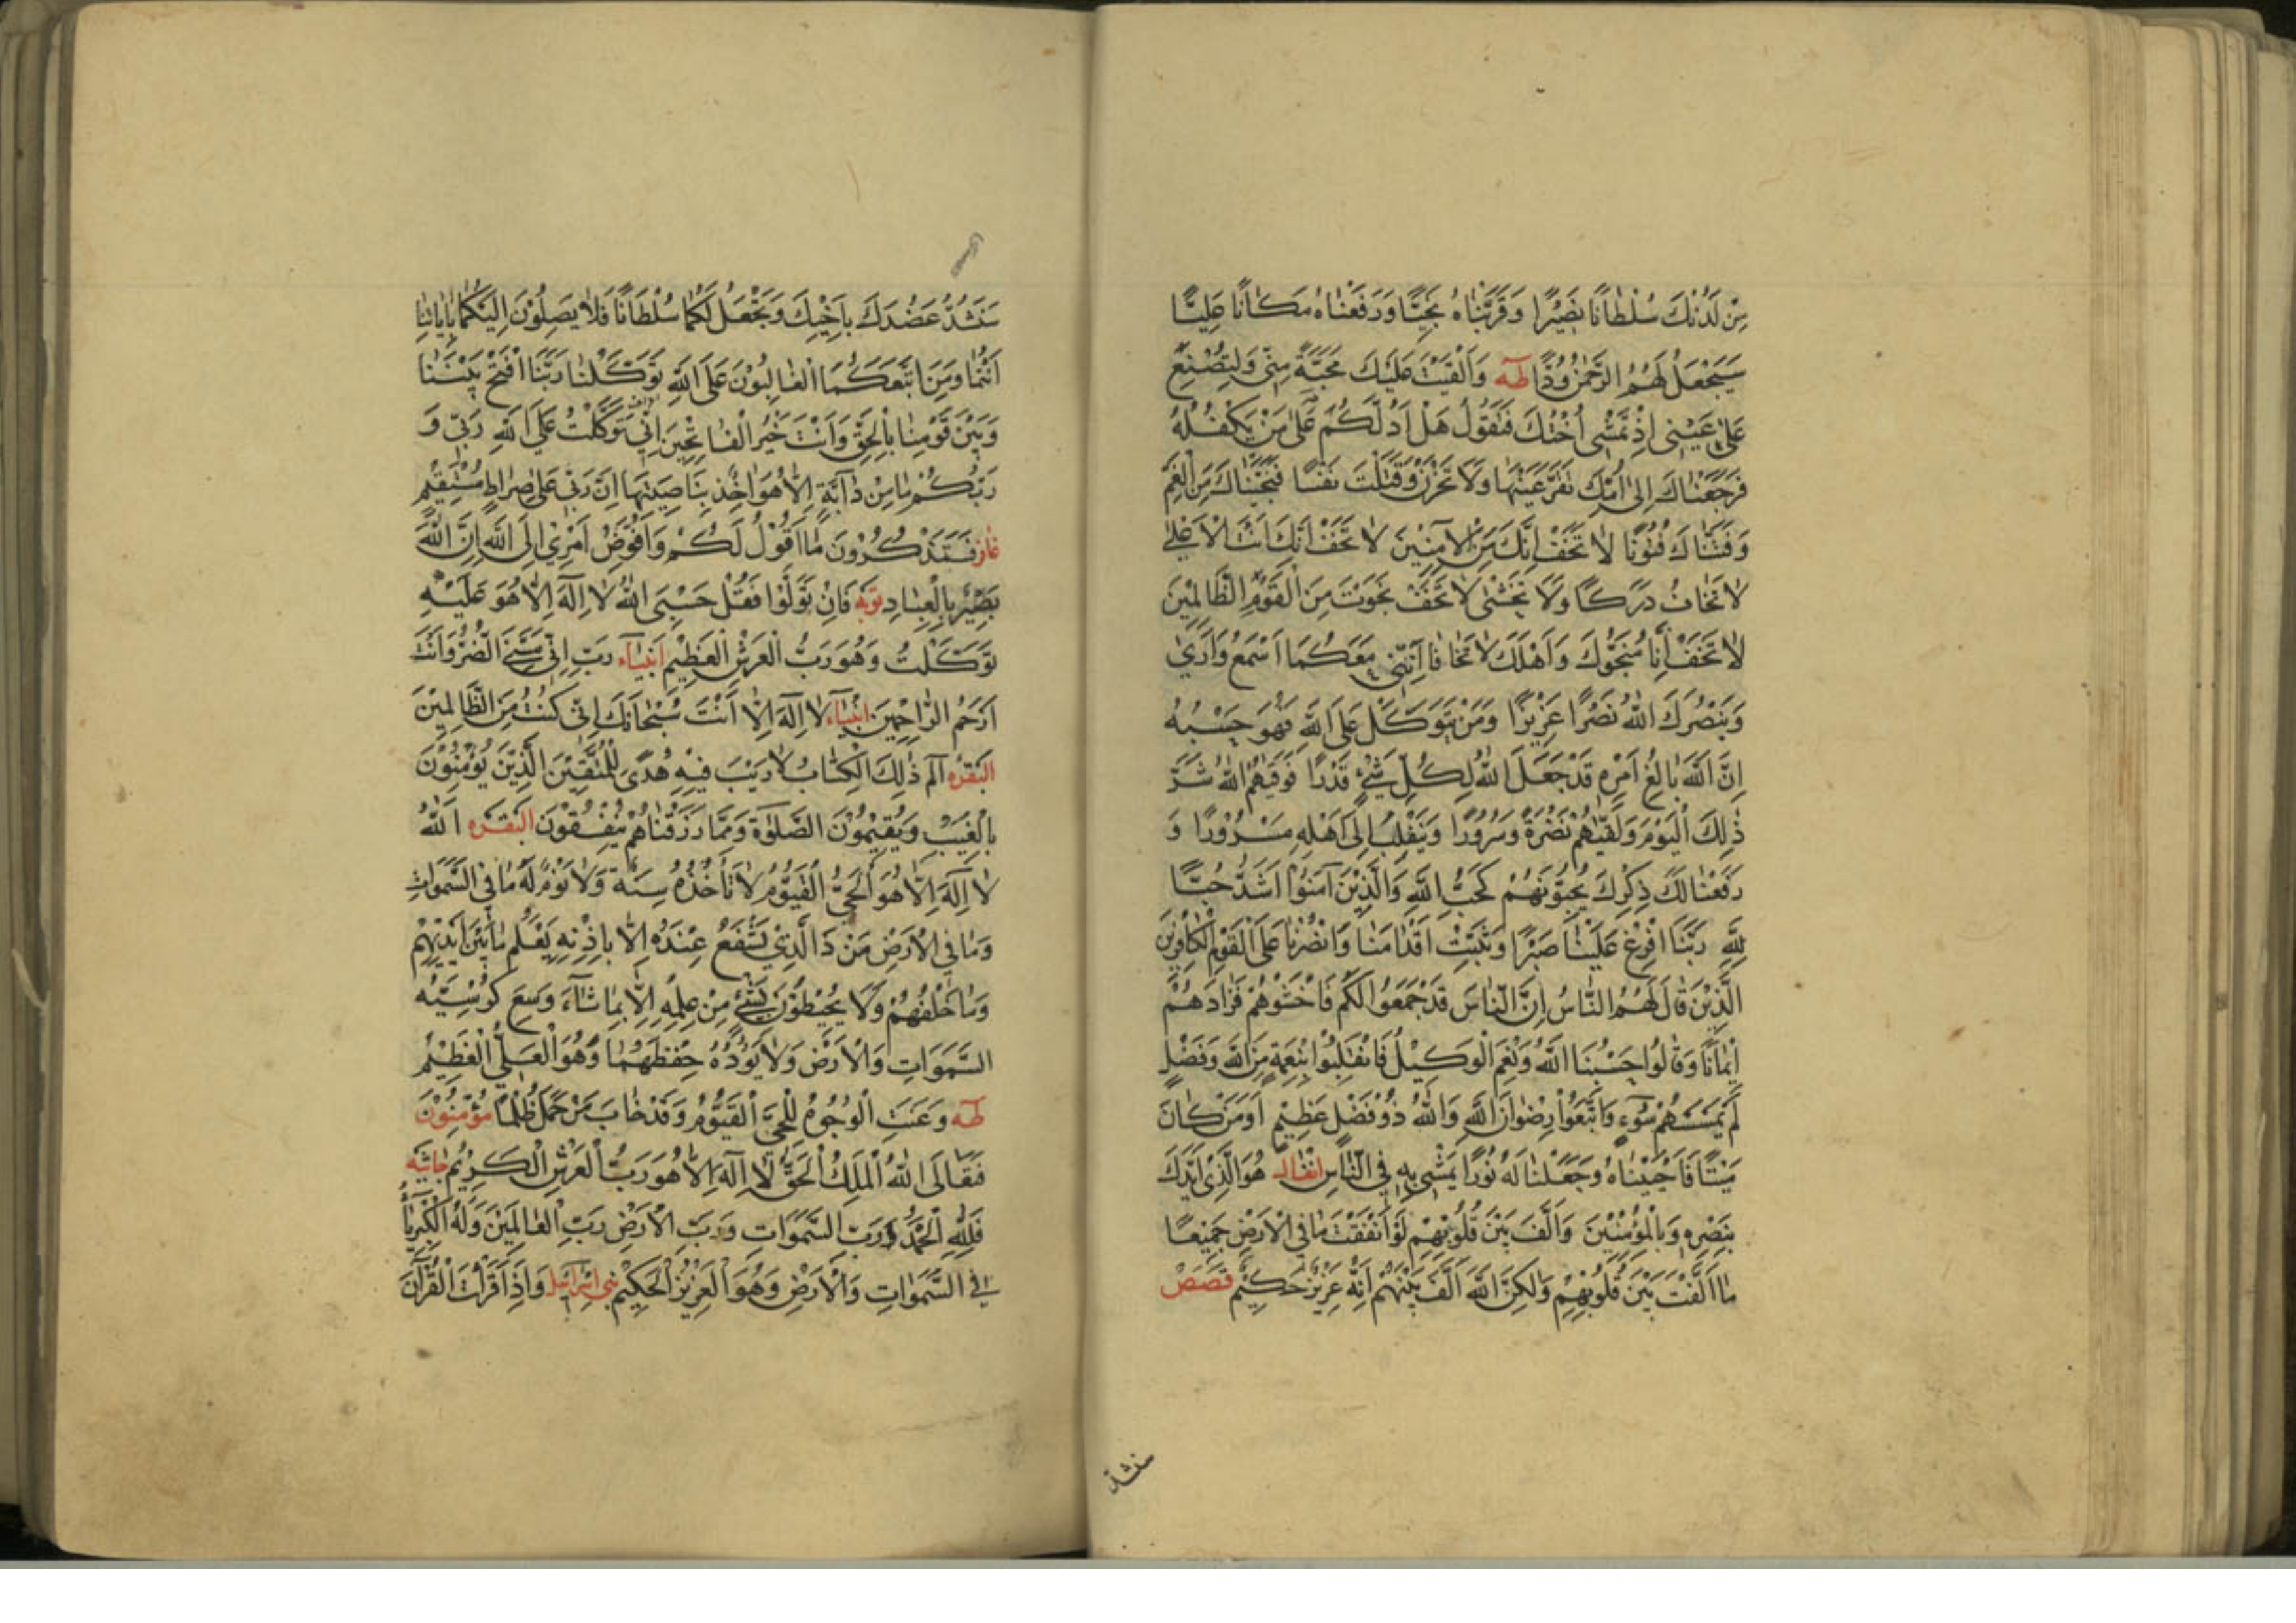 مِنْ لَدُنْكَ سُلْطَانًا نَصِيْرًا وَقَرَّبْنَاهُ نَجِيًّا وَرَفَعْنَاهُ مَكَانًا عَلِيًّا
سَيَجْعَلُ لَهُمُ الرَّحْمٰنُ وُدًّا طٰهٰ وَاَلْقَيْتُ عَلَيْكَ مَحَبَّةً مِنِّي وَلِتُصْنَعَ
عَلٰى عَيْنِي اِذْ تَمْشِي اُخْتُكَ فَتَقُوْلُ هَلْ اَدُلُّكُمْ عَلٰى مَنْ يَكْفُلُهُ
فَرَجَعْنَاكَ اِلٰى اُمِّكَ تَقَرَّ عَيْنُهَا وَلَا تَحْزَنْ وَقَتَلْتَ نَفْسًا فَنَجَّيْنَاكَ مِنَ الْغَمِّ
وَفَتَنَّاكَ فُتُوْنًا لَا تَخَفْ اِنَّكَ مِنَ الْاٰمِنِيْنَ لَا تَخَفْ اِنَّكَ اَنْتَ الْاَعْلٰى
لَا تَخَافُ دَرَكًا وَلَا تَخْشٰى لَا تَخَفْ نَجَوْتَ مِنَ الْقَوْمِ الظَّالِمِيْنَ
لَا تَخَفْ اِنَّا مُنَجُّوْكَ وَاَهْلَكَ لَا تَخَافَا اِنَّنِي مَعَكُمَا اَسْمَعُ وَاَرٰى
وَيَنْصُرَكَ اللّٰهُ نَصْرًا عَزِيْزًا وَمَنْ يَتَوَكَّلْ عَلَى اللّٰهِ فَهُوَ حَسْبُهُ
اِنَّ اللّٰهَ بَالِغُ اَمْرِهِ قَدْ جَعَلَ اللّٰهُ لِكُلِّ شَيْءٍ قَدْرًا فَوَقٰيهُمُ اللّٰهُ شَرَّ
ذٰلِكَ الْيَوْمِ وَلَقّٰيهُمْ نَضْرَةً وَسُرُوْرًا وَيَنْقَلِبُ اِلٰى اَهْلِهِ مَسْرُوْرًا وَ
رَفَعْنَا لَكَ ذِكْرَكَ يُحِبُّوْنَهُمْ كَحُبِّ اللّٰهِ وَالَّذِيْنَ اٰمَنُوْا اَشَدُّ حُبًّا
لِلّٰهِ رَبَّنَا اَفْرِغْ عَلَيْنَا صَبْرًا وَثَبِّتْ اَقْدَامَنَا وَانْصُرْنَا عَلَى الْقَوْمِ الْكَافِرِيْنَ
الَّذِيْنَ قَالَ لَهُمُ النَّاسُ اِنَّ النَّاسَ قَدْ جَمَعُوْا لَكُمْ فَاخْشَوْهُمْ فَزَادَهُمْ
اِيْمَانًا وَقَالُوا حَسْبُنَا اللّٰهُ وَنِعْمَ الْوَكِيْلُ فَانْقَلَبُوا بِنِعْمَةٍ مِنَ اللّٰهِ وَفَضْلٍ
لَمْ يَمْسَسْهُمْ سُوْٓءٌ وَاتَّبَعُوْا رِضْوَانَ اللّٰهِ وَاللّٰهُ ذُوْ فَضْلٍ عَظِيْمٍ اَوَمَنْ كَانَ
مَيْتًا فَاَحْيَيْنَاهُ وَجَعَلْنَا لَهُ نُوْرًا يَمْشِي بِهِ فِي النَّاسِ انفال هُوَ الَّذِي اَيَّدَكَ
بِنَصْرِهِ وَبِالْمُؤْمِنِيْنَ وَاَلَّفَ بَيْنَ قُلُوْبِهِمْ لَوْ اَنْفَقْتَ مَا فِي الْاَرْضِ جَمِيْعًا
مَا اَلَّفْتَ بَيْنَ قُلُوْبِهِمْ وَلٰكِنَّ اللّٰهَ اَلَّفَ بَيْنَهُمْ اِنَّهُ عَزِيْزٌ حَكِيْمٌ قصص
سنشد
سَنَشُدُّ عَضُدَكَ بِاَخِيْكَ وَنَجْعَلُ لَكُمَا سُلْطَانًا فَلَا يَصِلُوْنَ اِلَيْكُمَا بِاٰيَاتِنَا
اَنْتُمَا وَمَنِ اتَّبَعَكُمَا الْغَالِبُوْنَ عَلَى اللّٰهِ تَوَكَّلْنَا رَبَّنَا افْتَحْ بَيْنَنَا
وَبَيْنَ قَوْمِنَا بِالْحَقِّ وَاَنْتَ خَيْرُ الْفَاتِحِيْنَ اِنِّي تَوَكَّلْتُ عَلَى اللّٰهِ رَبِّي وَ
رَبِّكُمْ مَا مِنْ دَابَّةٍ اِلَّا هُوَ اٰخِذٌ بِنَاصِيَتِهَا اِنَّ رَبِّي عَلٰى صِرَاطٍ مُسْتَقِيْمٍ
غافر فَسَتَذْكُرُوْنَ مَا اَقُوْلُ لَكُمْ وَاُفَوِّضُ اَمْرِيْ اِلَى اللّٰهِ اِنَّ اللّٰهَ
بَصِيْرٌ بِالْعِبَادِ توبه فَاِنْ تَوَلَّوْا فَقُلْ حَسْبِيَ اللّٰهُ لَا اِلٰهَ اِلَّا هُوَ عَلَيْهِ
تَوَكَّلْتُ وَهُوَ رَبُّ الْعَرْشِ الْعَظِيْمِ انبياء رَبِّ اِنِّي مَسَّنِيَ الضُّرُّ وَاَنْتَ
اَرْحَمُ الرَّاحِمِيْنَ انبياء لَا اِلٰهَ اِلَّا اَنْتَ سُبْحَانَكَ اِنِّي كُنْتُ مِنَ الظَّالِمِيْنَ
البقره الٓمٓ ذٰلِكَ الْكِتَابُ لَا رَيْبَ فِيْهِ هُدًى لِلْمُتَّقِيْنَ الَّذِيْنَ يُؤْمِنُوْنَ
بِالْغَيْبِ وَيُقِيْمُوْنَ الصَّلٰوةَ وَمِمَّا رَزَقْنَاهُمْ يُنْفِقُوْنَ البقره اَللّٰهُ
لَا اِلٰهَ اِلَّا هُوَ الْحَيُّ الْقَيُّوْمُ لَا تَأْخُذُهُ سِنَةٌ وَلَا نَوْمٌ لَهُ مَا فِي السَّمٰوَاتِ
وَمَا فِي الْاَرْضِ مَنْ ذَا الَّذِيْ يَشْفَعُ عِنْدَهُ اِلَّا بِاِذْنِهِ يَعْلَمُ مَا بَيْنَ اَيْدِيْهِمْ
وَمَا خَلْفَهُمْ وَلَا يُحِيْطُوْنَ بِشَيْءٍ مِنْ عِلْمِهِ اِلَّا بِمَا شَاءَ وَسِعَ كُرْسِيُّهُ
السَّمٰوَاتِ وَالْاَرْضَ وَلَا يَؤُدُهُ حِفْظُهُمَا وَهُوَ الْعَلِيُّ الْعَظِيْمُ
طٰهٰ وَعَنَتِ الْوُجُوْهُ لِلْحَيِّ الْقَيُّوْمِ وَقَدْ خَابَ مَنْ حَمَلَ ظُلْمًا مؤمنون
فَتَعَالَى اللّٰهُ الْمَلِكُ الْحَقُّ لَا اِلٰهَ اِلَّا هُوَ رَبُّ الْعَرْشِ الْكَرِيْمِ جاثيه
فَلِلّٰهِ الْحَمْدُ رَبِّ السَّمٰوَاتِ وَرَبِّ الْاَرْضِ رَبِّ الْعَالَمِيْنَ وَلَهُ الْكِبْرِيَاءُ
فِي السَّمٰوَاتِ وَالْاَرْضِ وَهُوَ الْعَزِيْزُ الْحَكِيْمُ بني اسرائيل وَاِذَا قَرَأْتَ الْقُرْاٰنَ